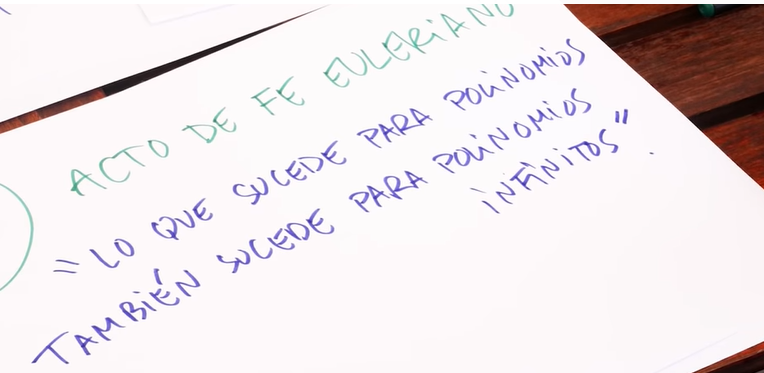 ACTO DE FE EULERiANO
"LO QUE SUCEDE PARA POLiNOMiOS
TAMBiÉN SUCEDE PARA POLiNOMiOS
iNFiNiTOS".